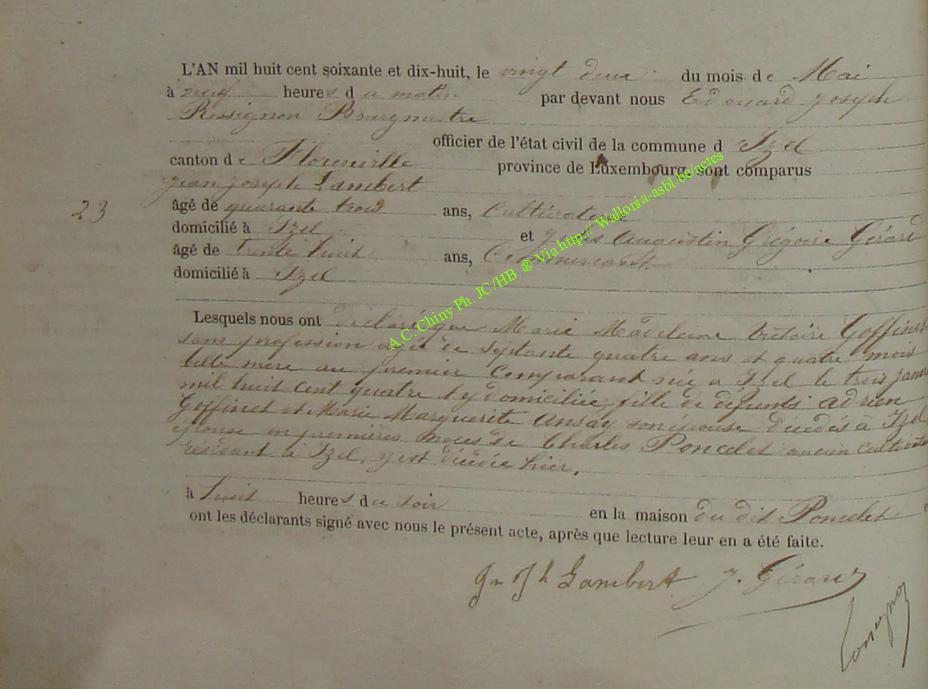 L'AN mil huit cent soixante et dix-huit, le vingt deux du mois de Mai
à neuf heures du matin par devant nous Edouard Joseph
Rossignon Bourgmestre
officier de l'état civil de la commune d Izel
canton de Florenville province de Luxembourg, sont comparus
Jean Joseph Lambert
23
âgé de quarante trois ans, Cultivateur
domicilié à Izel et Jules Augustin Grégoire Gérard
âgé de trente huit ans, Commercant
domicilié à Izel
Lesquels nous ont déclaré que Marie Madeleine Victoire Goffinet
sans profession agée de septante quatre ans et quatre mois
belle mère au premier Comparant née à Izel le trois janvier
mil huit cent quatre & y domiciliée, fille de défunts Adrien
Goffinet et Marie Marguerite Ansay son épouse décédés à Izel
épouse en premières noces de Charles Poncelet ancien cultivateur
résidant à Izel, y est décédée hier,
à huit heures du soir en la maison du dit Poncelet
ont les déclarants signé avec nous le présent acte, après que lecture leur en a été faite.
Jn Jh Lambert J. Gérard
Rossignon
A.C. Chiny Ph. JC/HB @ Via http:// Wallonia-asbl.be/actes